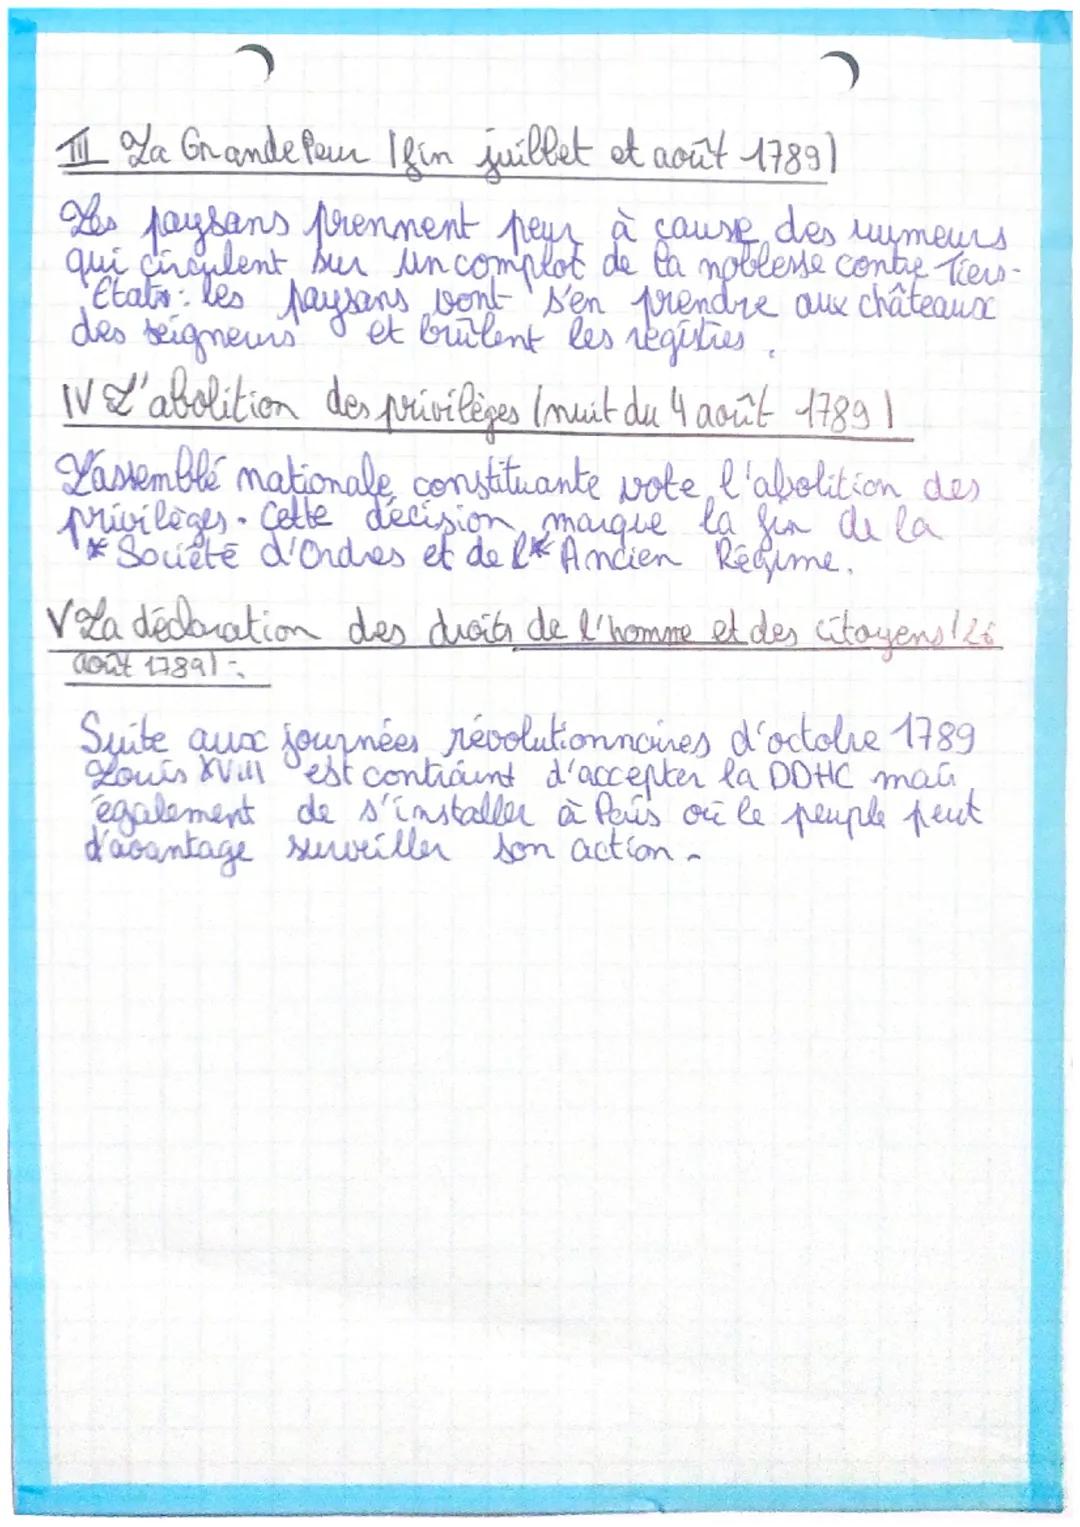 III La Grande Peur (fin juillet et août 1789)
Les paysans prennent peur à cause des rumeurs
qui circulent sur un complot de la noblesse contre Tiers-
Etats : les paysans vont s'en prendre aux châteaux
des seigneurs et brûlent les registres.
IV L'abolition des privilèges (nuit du 4 août 1789)
L'assemblé nationale constituante vote l'abolition des
privilèges. Cette décision marque la fin de la
* Société d'Ordres et de l'* Ancien Régime.
V La déclaration des droits de l'homme et des citoyens (26
août 1789) :
Suite aux journées révolutionnaires d'octobre 1789
Louis XVIII est contraint d'accepter la DDHC mais
également de s'installer à Paris où le peuple peut
d'avantage surveiller son action.